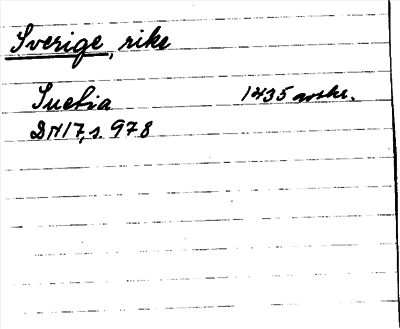 Sverige, rike
Suetia 1435 avskr.
DN17, s. 978